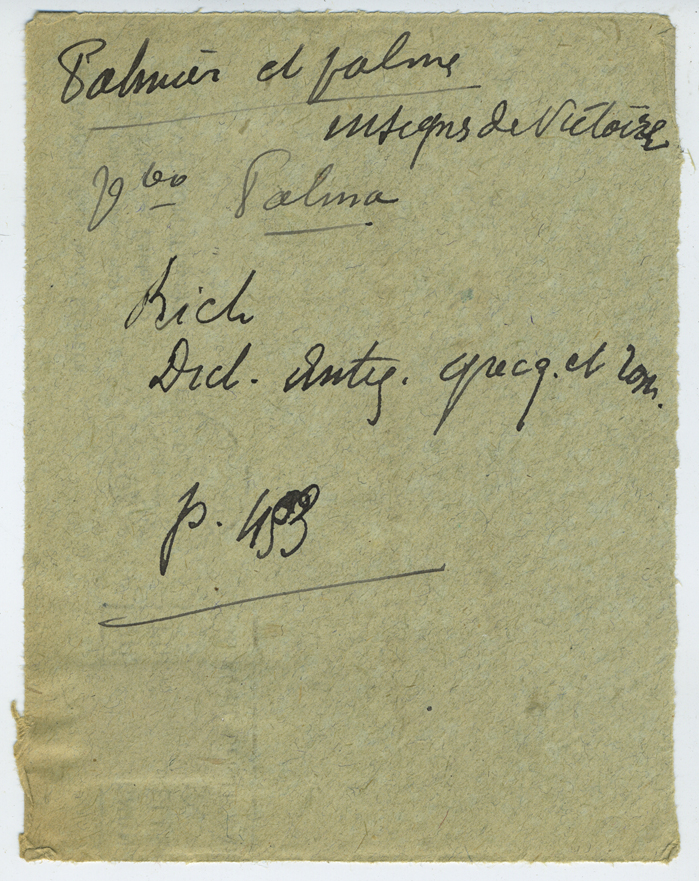 Palmier et palme
insigne de Victoire
Vbo Palma
Rich
Dict. Antiq. grecq. et rom.
p. 453